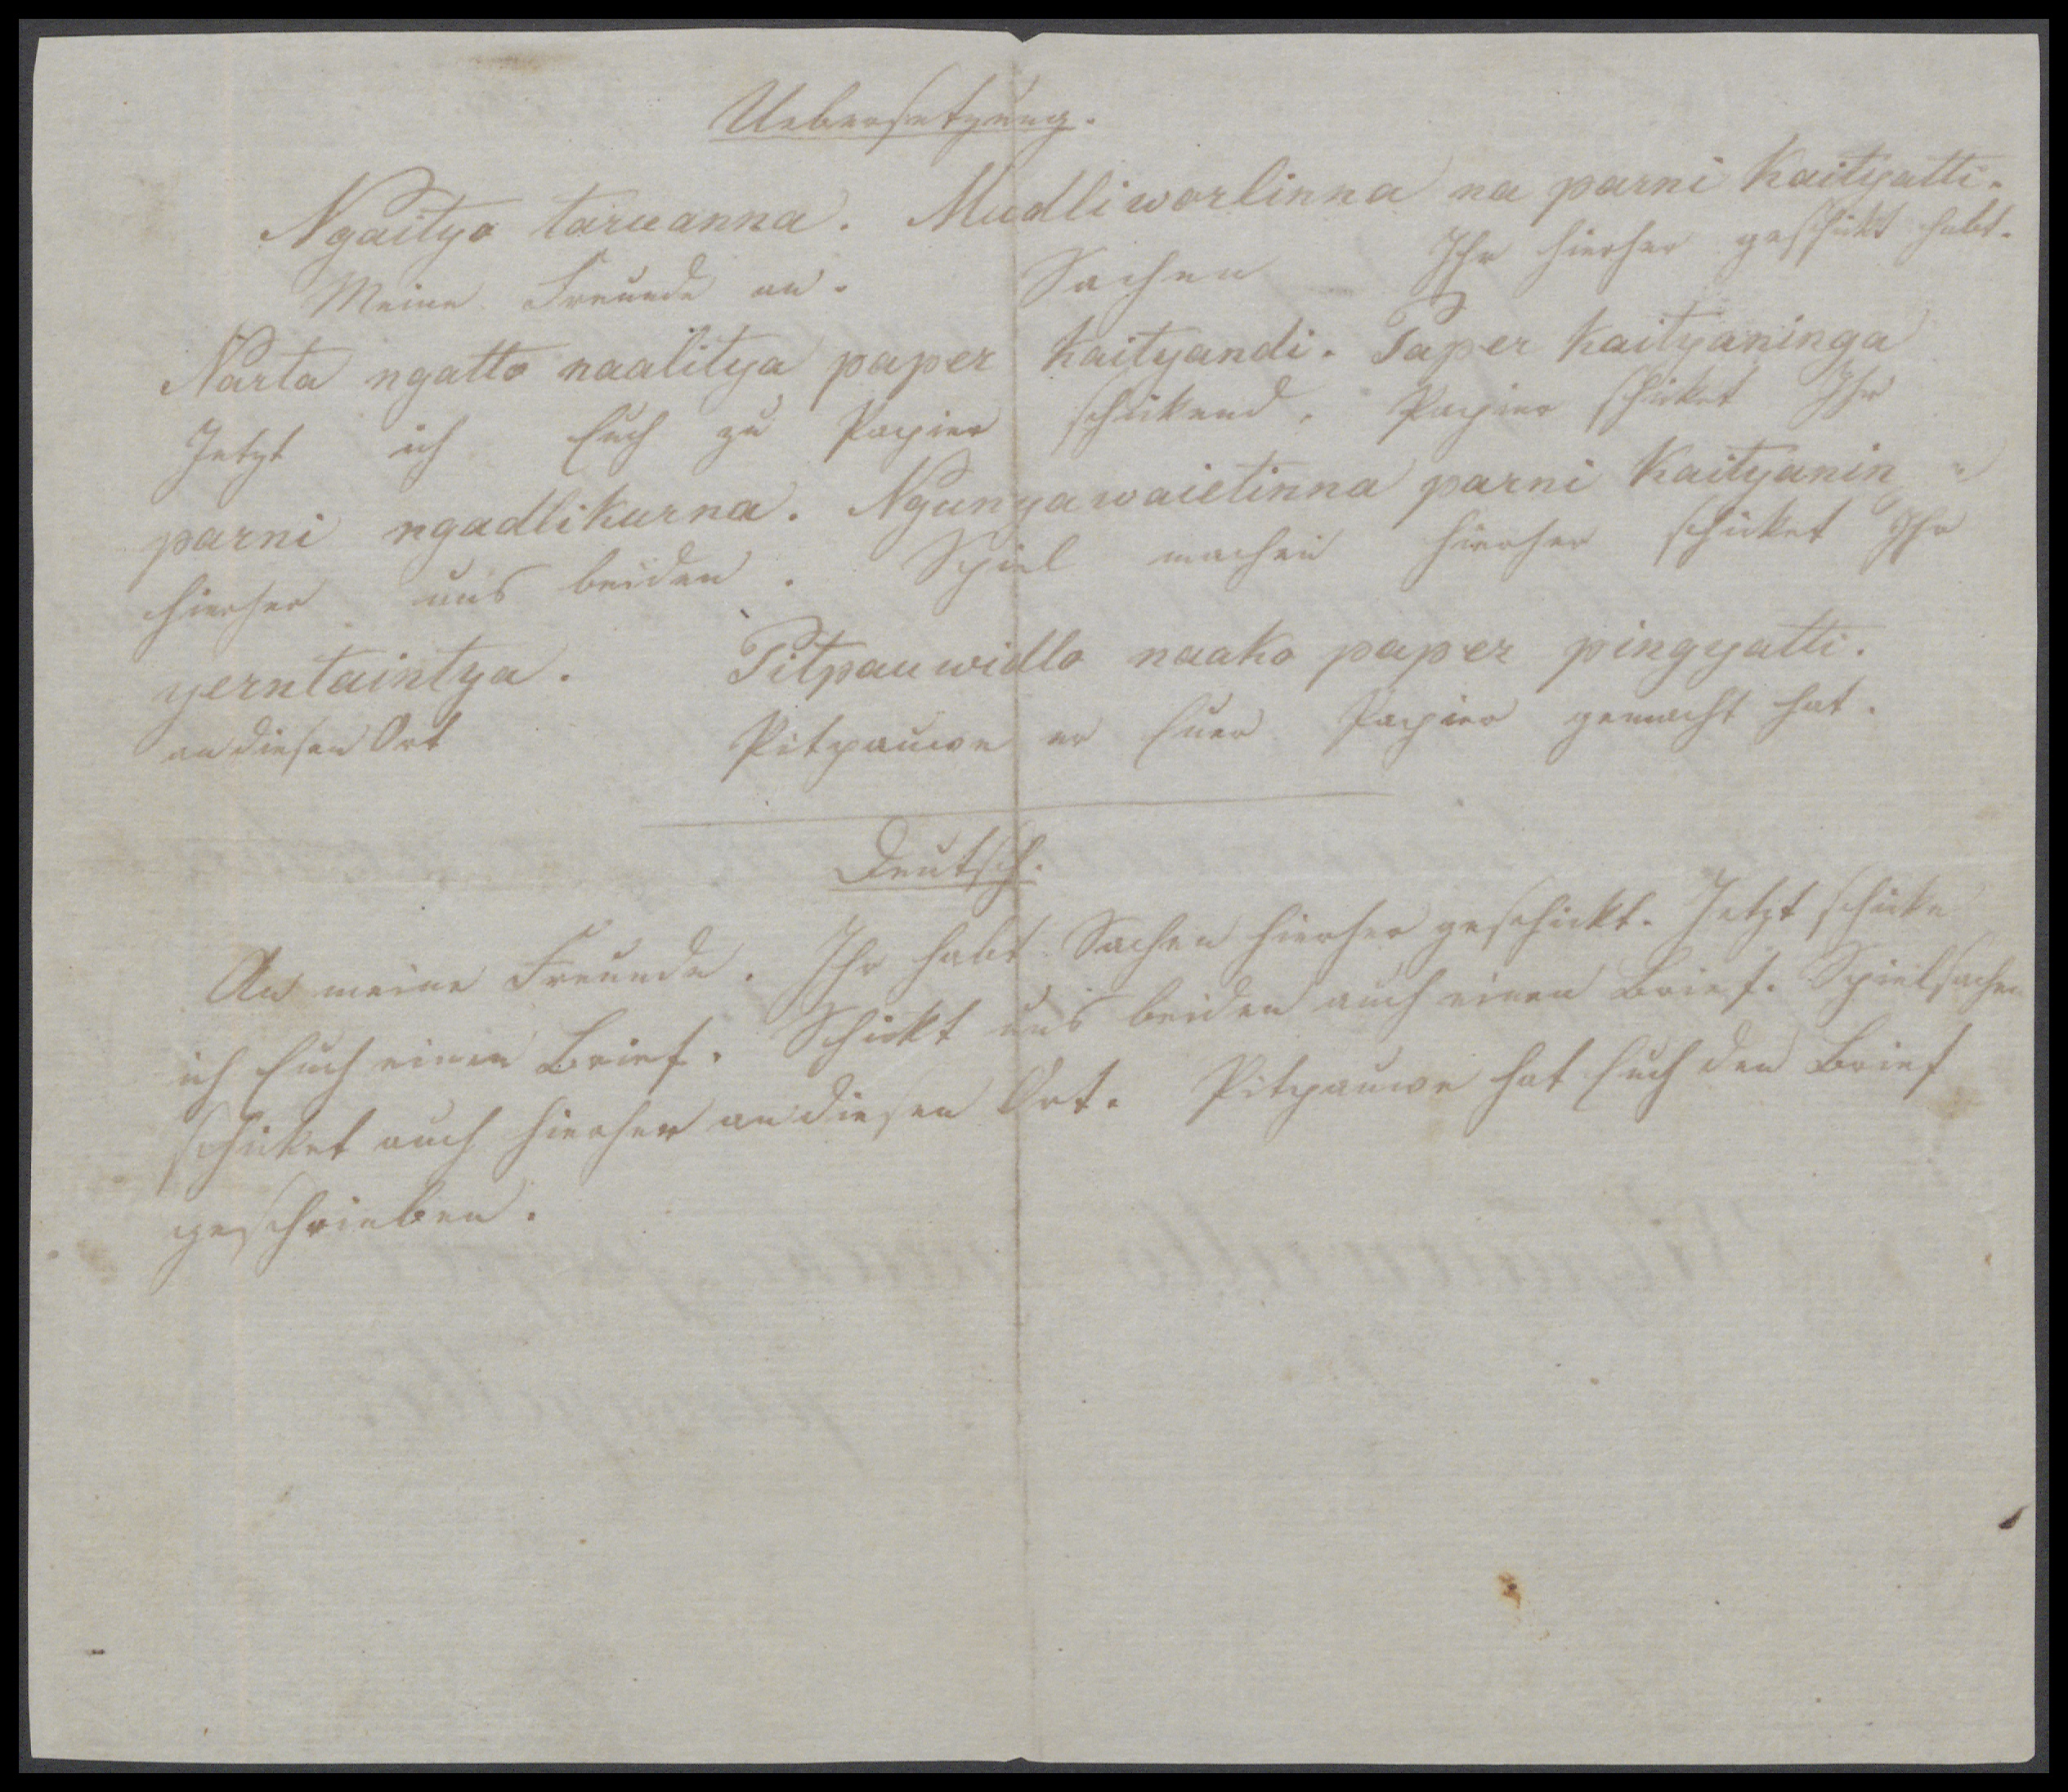 Uebersetzung.
Ngaityo taruanna. Mudliworlinna na parni kaityatti.
Meine Freunde an. Sachen Ihr hierher geschickt habt.
Narta ngatto naalitya paper kaityandi. Paper kaityaninga
Jetzt ich Euch zu Papier schickend. Papier schicket Ihr
parni ngadlikurna. Ngunyawaietinna parni kaityanin
hierher uns beiden. Spiel machen hierher schicket Ihr
yerntaintya. Pitpauwidlo naako paper pingyatti.
an diesen Ort Pitpauwe er Euer Papier gemacht hat.
Deutsch.
An meine Freunde. Ihr habt Sachen hierher geschickt. Jetzt schicke
ich Euch einen Brief. Schickt uns beiden auch einen Brief. Spielsachen
schicket auch hierher an diesen Ort. Pitpauwe hat Euch den Brief
geschrieben.